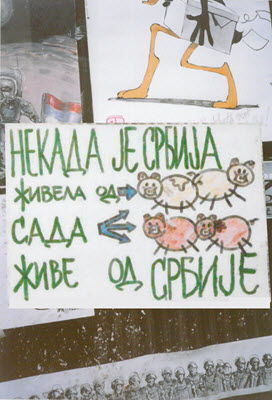 НЕКАДА ЈЕ СРБИЈА
ЖИВЕЛА ОД
САДА
ЖИВЕ ОД СРБИЈЕ